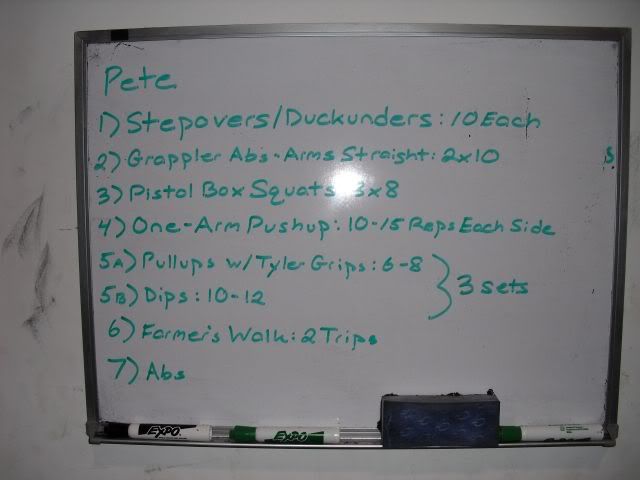 Pete
1) Stepovers/Duckunders: 10 Each
2) Grappler Abs - Arms Straight: 2x10
3) Pistol Box Squats: 3x8
4) One-Arm Pushup: 10-15 Reps Each Side
5A) Pullups w/ Tyler Grips: 6-8
5B) Dips: 10-12
3 sets
6) Farmer's Walk: 2 Trips
7) Abs
EXPO
EXPO